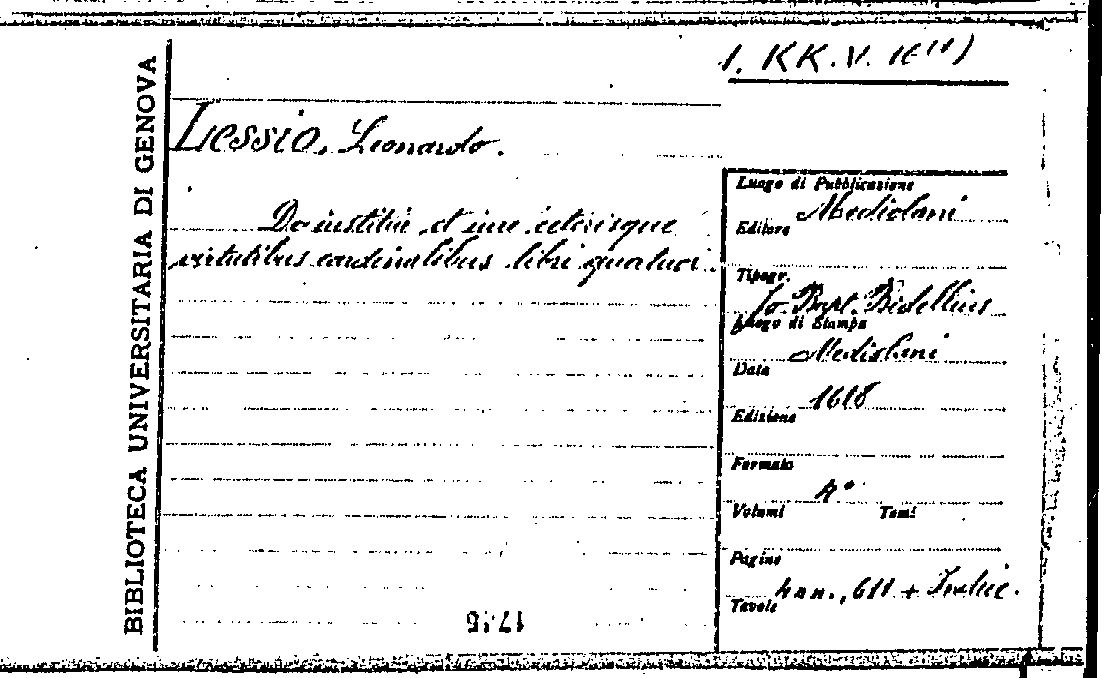 1. KK.V. 16(1)
BIBLIOTECA UNIVERSITARIA DI GENOVA
Lessio, Leonardo.
De iustitia et iure ceterisque
virtutibus cardinalibus libri quatuor.
Luogo di Pubblicazione
Mediolani
Editore
Tipogr.
Jo. Bapt. Bidellius
Luogo di Stampa
Mediolani
Data
1618
Edizione
Formato
4°
Volumi Tomi
Pagine
4 nn., 611 + Indic.
Tavole